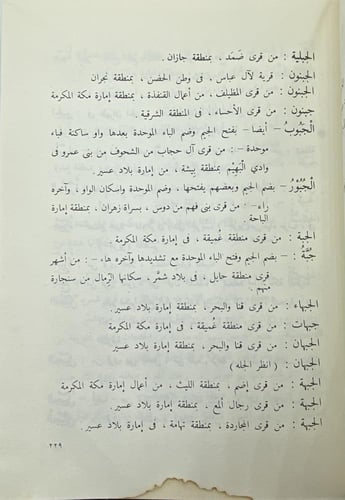 الجبلية : من قرى ضَمَد ، بمنطقة جازان .
الجبنون : قرية لآل عباس ، فى وطن الحضن ، بمنطقة نجران
الجبنون : من قرى المظيلف ، من أعمال القنفذة ، بمنطقة إمارة مكة المكرمة
جبنون : من قرى الأحساء ، فى المنطقة الشرقية .
الْجَبُوبُ – أيضا – بفتح الجيم وضم الباء الموحدة بعدها واو ساكنة فباء
موحدة – : من قرى آل حجاب من الشحوف من بنى عمرو فى
وادي الْبَهِيْم بمنطقة بيشة ، من إمارة بلاد عسير .
الْجُبُوْرُ – بضم الجيم وبعضهم يفتحها ، وضم الموحدة واسكان الواو ، وآخره
راء – : من قرى بنى فهم من دوس ، بسراة زهران ، بمنطقة إمارة
الباحة .
الجبة : من قرى منطقة غُميقة ، فى إمارة مكة المكرمة .
جُبَّةُ : – بضم الجيم وفتح الباء الموحدة مع تشديدها وآخره هاء – : من أشهر
قرى منطقة حايل ، فى بلاد شمَّر ، سكانها الرِّمال من سنجارة
منهم .
الجبهاء : من قرى قنا والبحر ، بمنطقة إمارة بلاد عسير .
جبهات : من قرى منطقة غُميقة ، فى إمارة مكة المكرمة
الجبهان : من قرى قنا والبحر ، بمنطقة إمارة بلاد عسير
الجبهان : ( انظر الجله )
الجبهة : من قرى إضم ، بمنطقة الليث ، من أعمال إمارة مكة المكرمة
الجبهة : من قرى رجال ألمع ، بمنطقة إمارة بلاد عسير .
الجبهة : من قرى المجاردة ، بمنطقة تهامة ، فى إمارة بلاد عسير .
٢٢٩